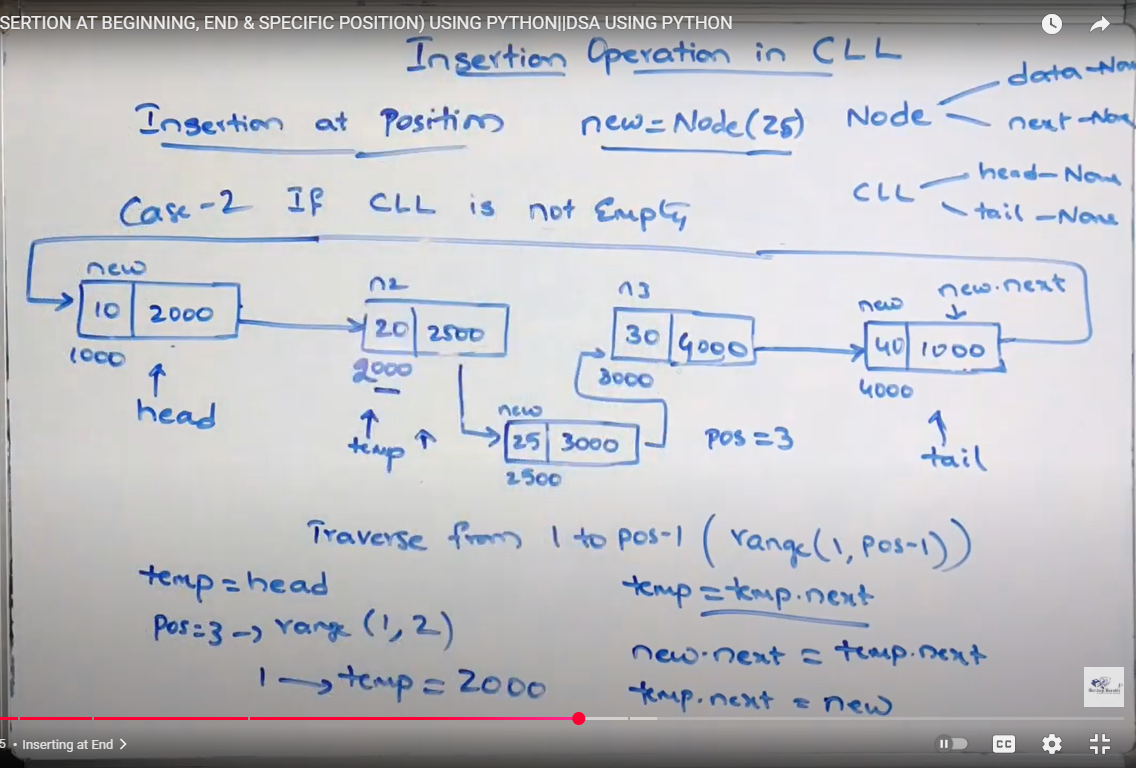 SERTION AT BEGINNING, END & SPECIFIC POSITION) USING PYTHON||DSA USING PYTHON
Insertion Operation in CLL
Insertion at Position new=Node(25) Node
data-Non
next-Non
CLL
head-None
tail-None
Case-2 If CLL is not Empty
new
10 2000
1000
head
n2
20 2500
2000
temp
new
25 3000
2500
n3
30 4000
3000
pos=3
new new.next
40 1000
4000
tail
Traverse from 1 to pos-1 (range(1,pos-1))
temp=head
pos=3→range (1,2)
1→temp=2000
temp=temp.next
new.next = temp.next
temp.next = new
5 • Inserting at End >
CC